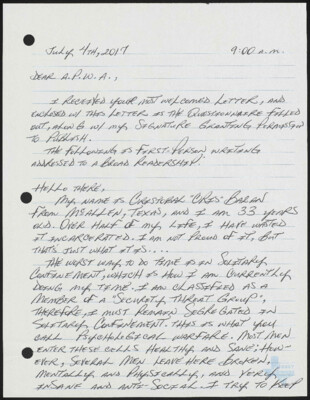 July, 4TH, 2017 9:00 a.m.
DEAR A.P.W.A.,
I RECEIVED YOUR MOST WELCOMED LETTER, AND
ENCLOSED w/ THIS LETTER IS THE QUESTIONNAIRE FILLED
OUT, ALONG w/ MY SIGNATURE GRANTING PERMISSION
TO PUBLISH.
THE FOLLOWING IS FIRST PERSON WRITING
ADDRESSED TO A BROAD READERSHIP:
HELLO THERE,
MY NAME IS "CRIS" BARAN
FROM McALLEN, TEXAS, AND I AM 33 YEARS
OLD. OVER HALF OF MY LIFE, I HAVE WASTED
IT INCARCERATED. I AM NOT PROUD OF IT, BUT
THAT'S JUST WHAT IT IS....
THE WORST WAY TO DO TIME IS IN SOLITARY
CONFINEMENT, WHICH IS HOW I AM CURRENTLY
DOING MY TIME. I AM CLASSIFIED AS A
MEMBER OF A "SECURITY THREAT GROUP",
THEREFORE, I MUST REMAIN SEGREGATED IN
SOLITARY CONFINEMENT. THIS IS WHAT YOU
CALL PSYCHOLOGICAL WARFARE. MOST MEN
ENTER THESE CELLS HEALTHY AND SANE; HOW-
EVER, SEVERAL MEN LEAVE HERE BROKEN,
MENTALLY, AND PHYSICALLY, AND VERY
INSANE AND ANTI-SOCIAL. I TRY TO KEEP